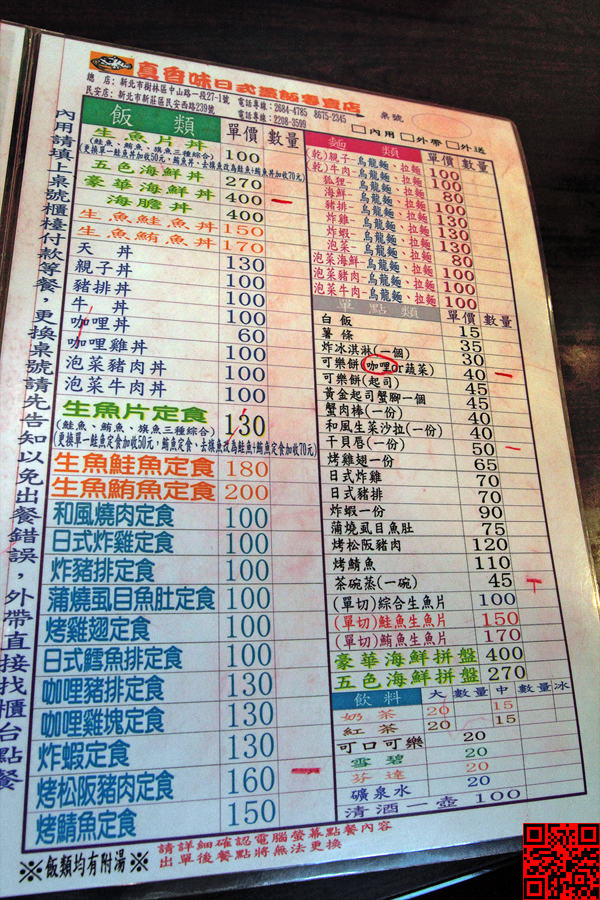 真香味日式蓋飯專賣店
總 店:新北市樹林區中山路一段27-1號 電話專線:2684-4785 8675-2345
民安店:新北市新莊區民安西路239號 電話專線:2208-3599
桌號
□內用 □外帶 □外送
內用請填上桌號櫃檯付款等餐,更換桌號請先告知以免出餐錯誤,外帶直接找櫃台點餐
飯 類 單價 數量
生魚片丼 100
(鮭魚、鮪魚、旗魚三種綜合)
(更換單一鮭魚丼加收50元,鮪魚丼、去旗魚改為鮭魚+鮪魚丼加收70元)
五色海鮮丼 270
豪華海鮮丼 400
海膽丼 400
生魚鮭魚丼 150
生魚鮪魚丼 170
天 丼 130
親子丼 100
豬排丼 100
牛 丼 100
咖哩丼 60
咖哩雞丼 100
泡菜豬肉丼 100
泡菜牛肉丼 100
生魚片定食 130
(鮭魚、鮪魚、旗魚三種綜合)
(更換單一鮭魚定食加收50元,鮪魚定食、去旗魚改為鮭魚+鮪魚定食加收70元)
生魚鮭魚定食 180
生魚鮪魚定食 200
和風燒肉定食 100
日式炸雞定食 100
炸豬排定食 100
蒲燒虱目魚肚定食 100
烤雞翅定食 100
日式鱈魚排定食 100
咖哩豬排定食 130
咖哩雞塊定食 130
炸蝦定食 130
烤松阪豬肉定食 160
烤鯖魚定食 150
※飯類均有附湯※
請詳細確認電腦螢幕點餐內容
出單後餐點將無法更換
麵 類 單價 數量
(乾)親子-烏龍麵、拉麵 100
(乾)牛肉-烏龍麵、拉麵 100
狐狸-烏龍麵、拉麵 80
海鮮-烏龍麵、拉麵 100
豬排-烏龍麵、拉麵 130
炸雞-烏龍麵、拉麵 130
炸蝦-烏龍麵、拉麵 130
泡菜-烏龍麵、拉麵 80
泡菜海鮮-烏龍麵、拉麵 100
泡菜豬肉-烏龍麵、拉麵 100
泡菜牛肉-烏龍麵、拉麵 100
單點類 單價 數量
白飯 15
薯條 35
炸冰淇淋(一個) 30
可樂餅(咖哩or蔬菜) 40
可樂餅(起司) 45
黃金起司蟹腳一個 45
蟹肉棒(一份) 40
和風生菜沙拉(一份) 40
干貝唇(一份) 50
烤雞翅一份 65
日式炸雞 70
日式豬排 70
炸蝦一份 90
蒲燒虱目魚肚 75
烤松阪豬肉 120
烤鯖魚 110
茶碗蒸(一碗) 45
(單切)綜合生魚片 100
(單切)鮭魚生魚片 150
(單切)鮪魚生魚片 170
豪華海鮮拼盤 400
五色海鮮拼盤 270
飲料 大 數量 中 數量 冰
奶茶 20 15
紅茶 20 15
可口可樂 20
雪碧 20
芬達 20
礦泉水 20
清酒一壺 100